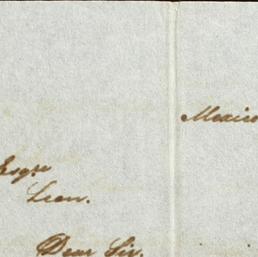 Mexico
Esqre
Leon.
Dear Sir.